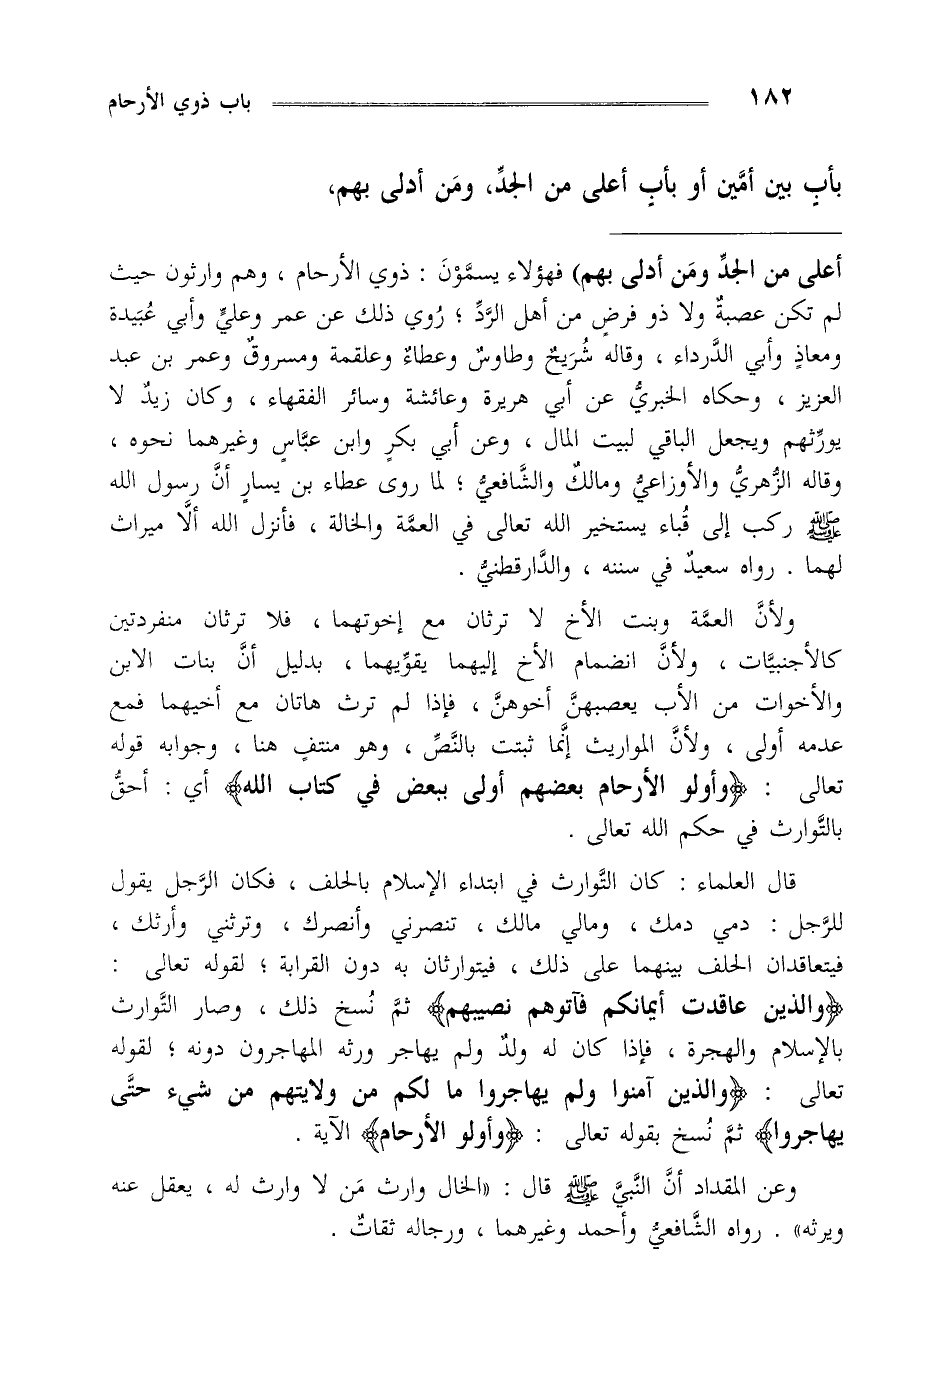 ١٨٢ باب ذوي الأرحام
بأبٍ بين أمَّين أو بأبٍ أعلى من الجدِّ، ومَن أدلى بهم،
أعلى من الجدِّ ومَن أدلى بهم) فهؤلاء يسمَّوْنَ : ذوي الأرحام ، وهم وارثون حيث
لم تكن عصبةٌ ولا ذو فرضٍ من أهل الرَّدِّ ؛ رُوي ذلك عن عمر وعليٍّ وأبي عُبَيدة
ومعاذٍ وأبي الدَّرداء ، وقاله شُرَيحٌ وطاوسٌ وعطاءٌ وعلقمة ومسروقٌ وعمر بن عبد
العزيز ، وحكاه الخبريُّ عن أبي هريرة وعائشة وسائر الفقهاء ، وكان زيدٌ لا
يورِّثهم ويجعل الباقي لبيت المال ، وعن أبي بكرٍ وابن عبَّاسٍ وغيرهما نحوه ،
وقاله الزُّهريُّ والأوزاعيُّ ومالكٌ والشَّافعيُّ ؛ لما روى عطاء بن يسارٍ أنَّ رسول الله
ﷺ ركب إلى قُباء يستخير الله تعالى في العمَّة والخالة ، فأنزل الله ألَّا ميراث
لهما . رواه سعيدٌ في سننه ، والدَّارقطنيُّ .
ولأنَّ العمَّة وبنت الأخ لا ترثان مع إخوتهما ، فلا ترثان منفردتين
كالأجنبيَّات ، ولأنَّ انضمام الأخ إليهما يقوِّيهما ، بدليل أنَّ بنات الابن
والأخوات من الأب يعصبهنَّ أخوهنَّ ، فإذا لم ترث هاتان مع أخيهما فمع
عدمه أولى ، ولأنَّ المواريث إنَّما ثبتت بالنَّصِّ ، وهو منتفٍ هنا ، وجوابه قوله
تعالى : ﴿وأولو الأرحام بعضهم أولى ببعض في كتاب الله﴾ أي : أحقُّ
بالتَّوارث في حكم الله تعالى .
قال العلماء : كان التَّوارث في ابتداء الإسلام بالحلف ، فكان الرَّجل يقول
للرَّجل : دمي دمك ، ومالي مالك ، تنصرني وأنصرك ، وترثني وأرثك ،
فيتعاقدان الحلف بينهما على ذلك ، فيتوارثان به دون القرابة ؛ لقوله تعالى :
﴿والذين عاقدت أيمانكم فآتوهم نصيبهم﴾ ثمَّ نُسخ ذلك ، وصار التَّوارث
بالإسلام والهجرة ، فإذا كان له ولدٌ ولم يهاجر ورثه المهاجرون دونه ؛ لقوله
تعالى : ﴿والذين آمنوا ولم يهاجروا ما لكم من ولايتهم من شيء حتَّى
يهاجروا﴾ ثمَّ نُسخ بقوله تعالى : ﴿وأولو الأرحام﴾ الآية .
وعن المقداد أنَّ النَّبيَّ ﷺ قال : «الخال وارث مَن لا وارث له ، يعقل عنه
ويرثه» . رواه الشَّافعيُّ وأحمد وغيرهما ، ورجاله ثقاتٌ .